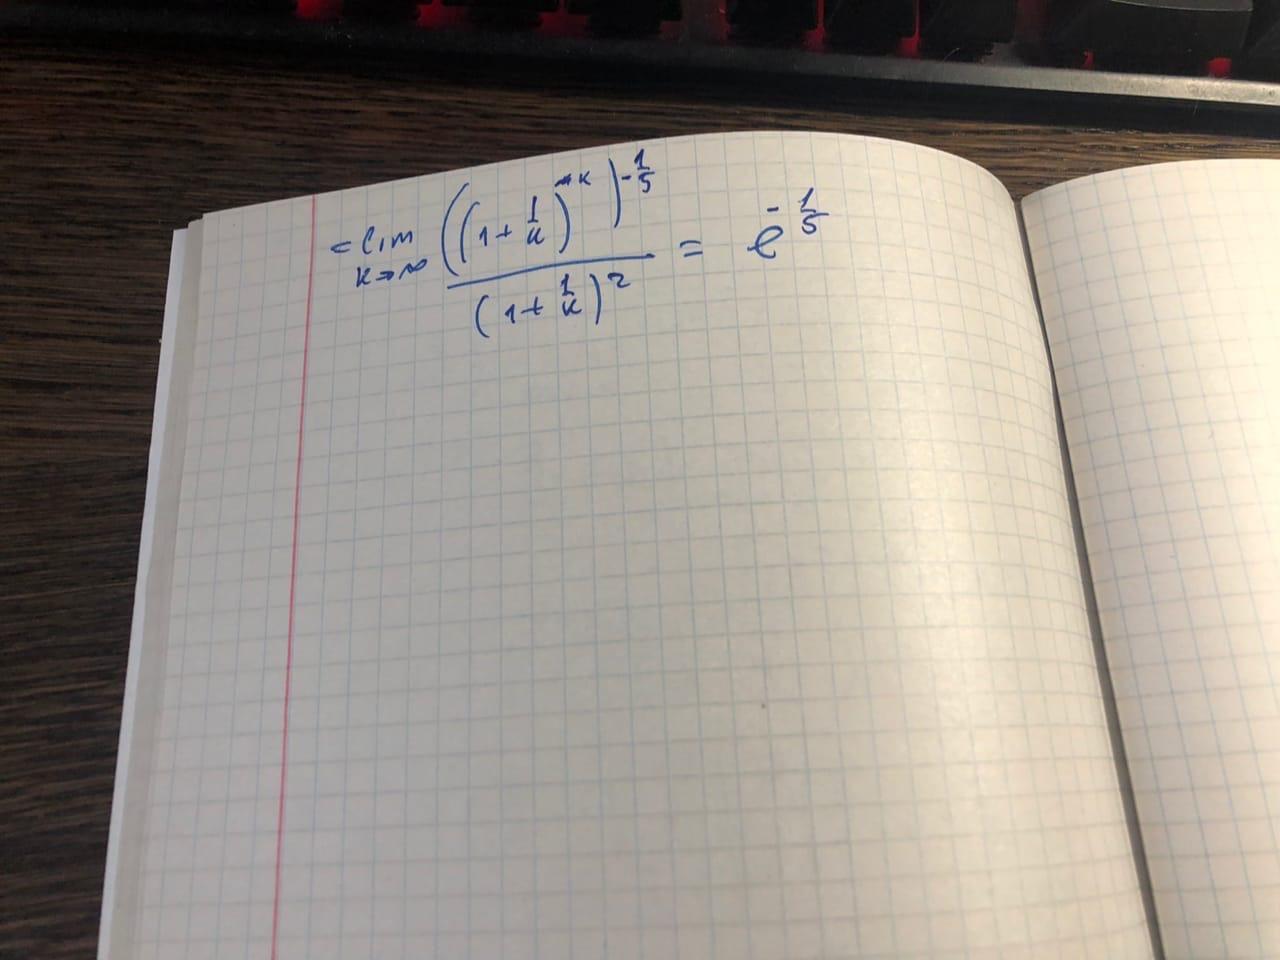 = lim k→∞ ((1+1/k)^k)^(-1/5) / (1+1/k)^2 = e^(-1/5)